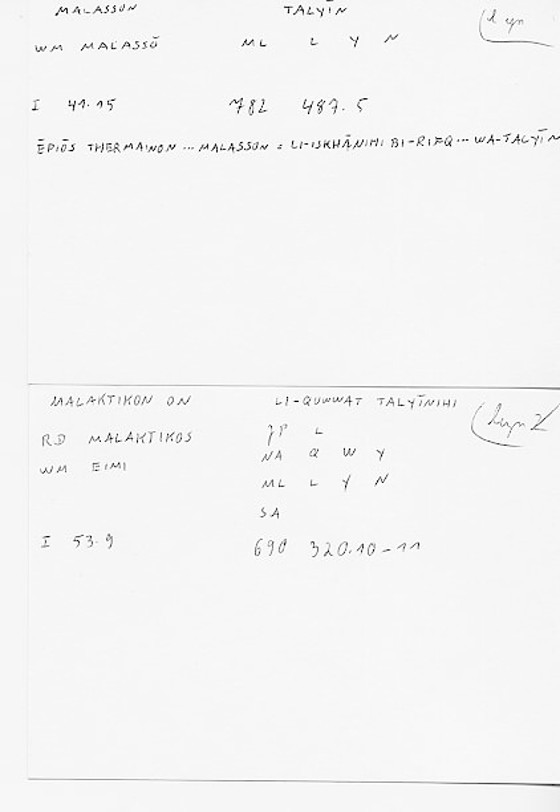 MALASSON TALYĪN
lyn
WM MALASSŌ ML L Y N
I 41.15 782 487.5
ĒPIŌS THERMAINON ... MALASSON = LI-ISKHĀNIHI BI-RIFQ ... WA-TALYĪN
MALAKTIKON ON LI-QUWWAT TALYĪNIHI
lyn 2
RD MALAKTIKOS JP L
WM EIMI NA Q W Y
ML L Y N
SA
I 53.9 690 320.10-11